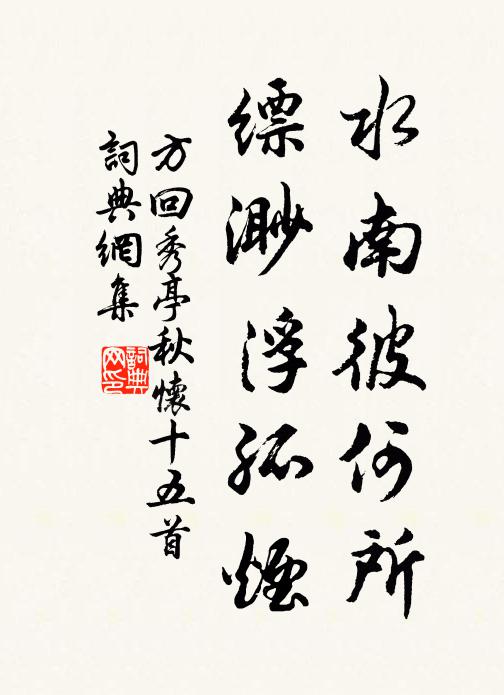 水南彼何所
縹渺浮孤煙
方回秀亭秋懷十五首
詞典網集
詞典网印